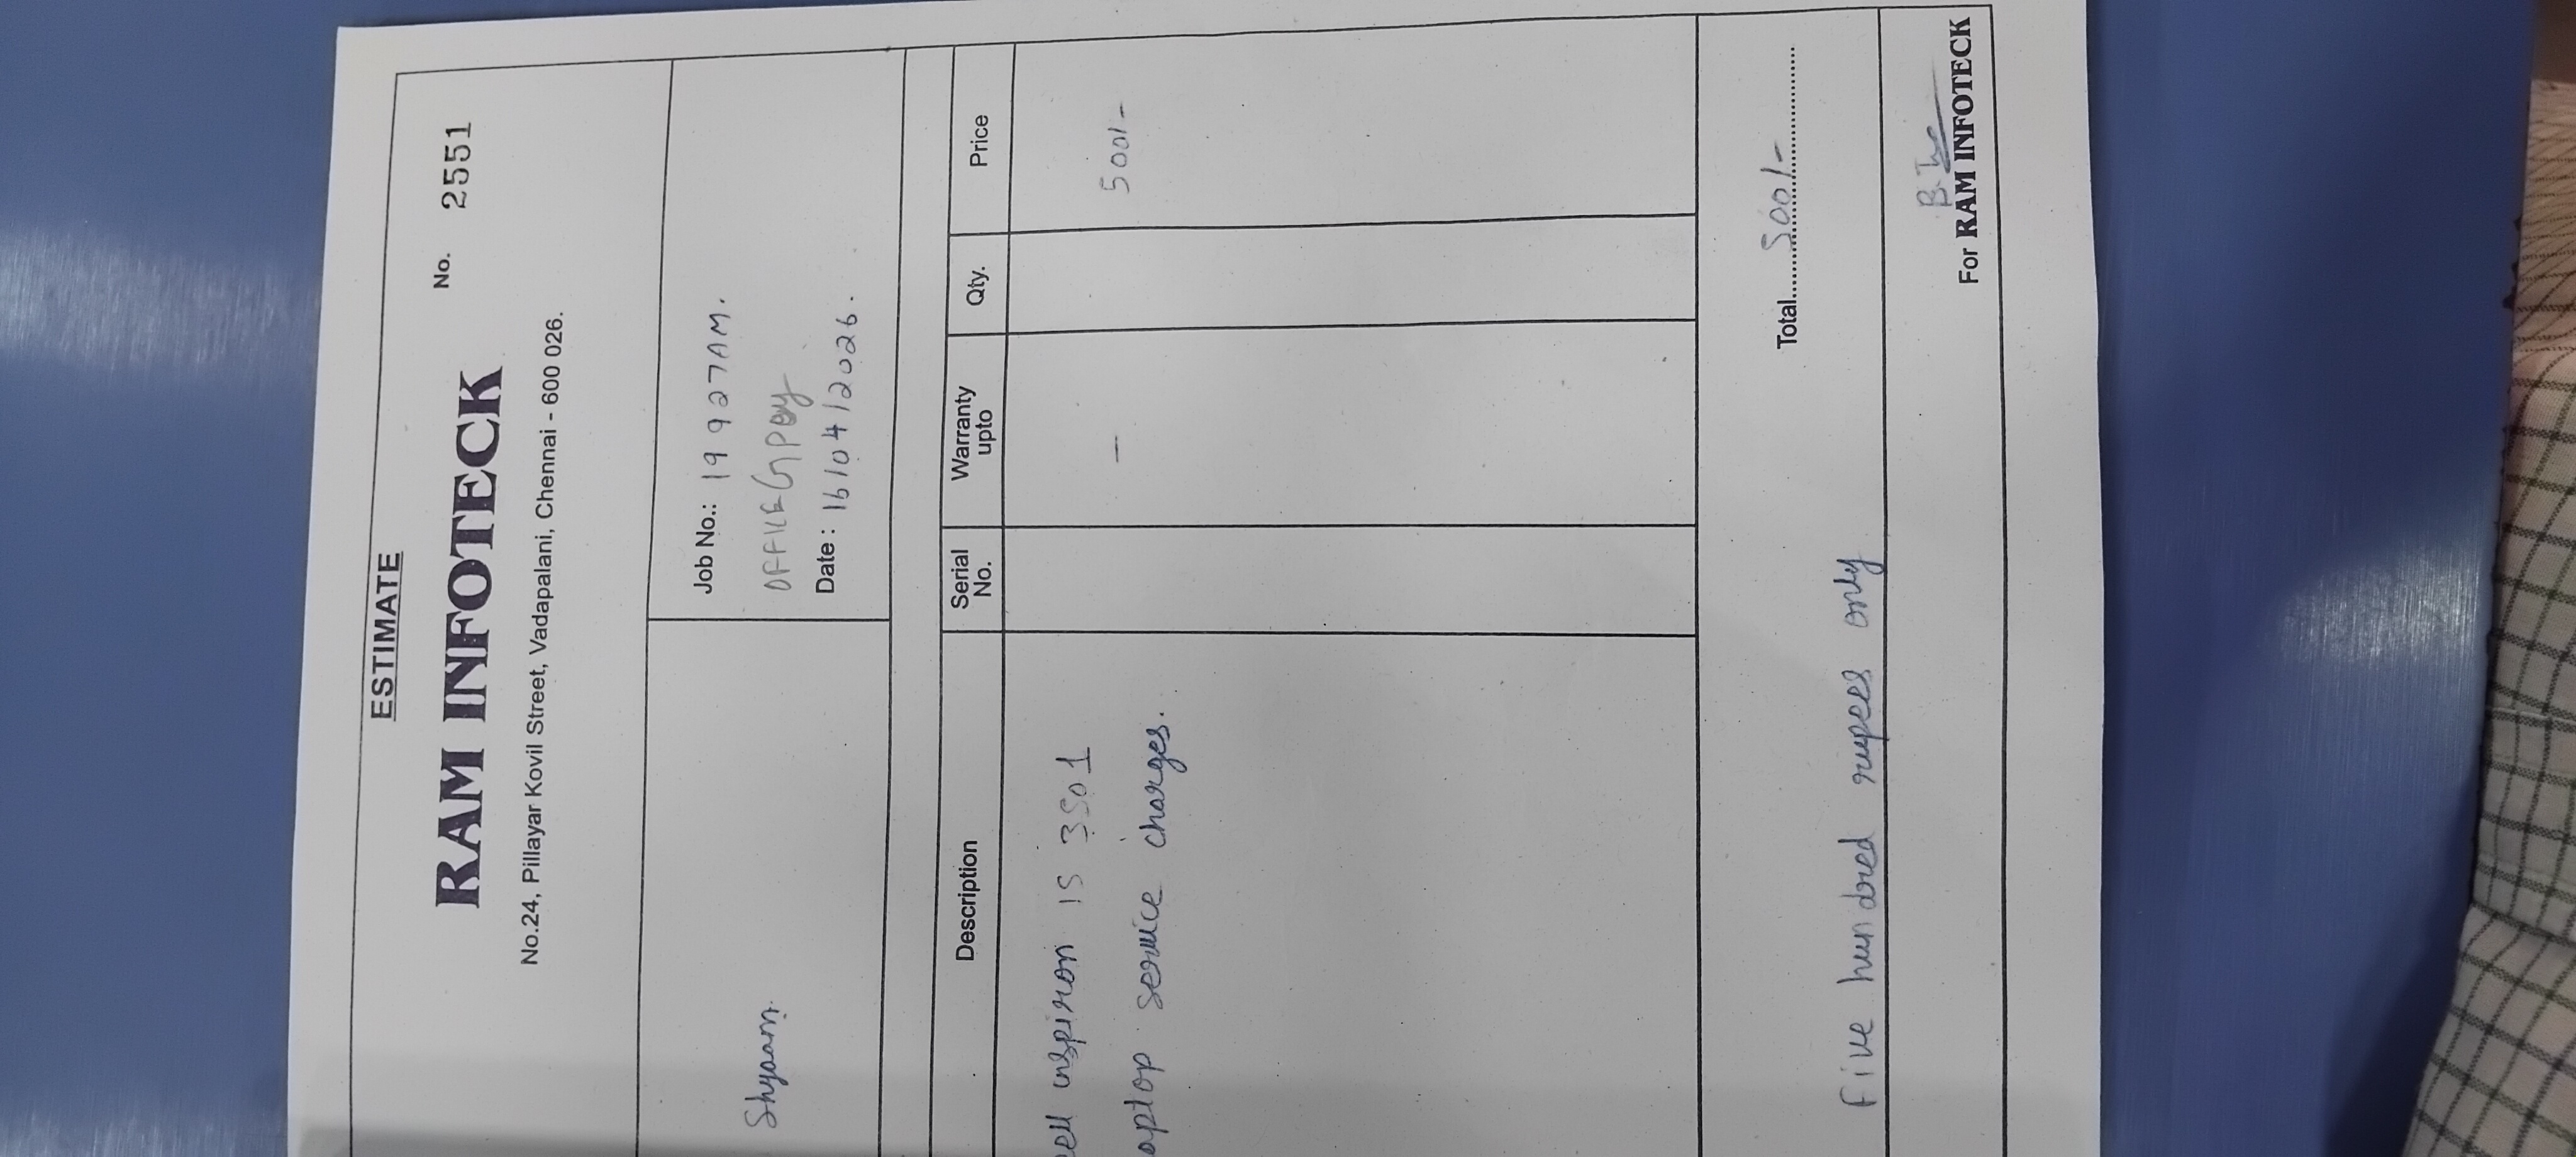 ESTIMATE
RAM INFOTECK
No. 2551
No.24, Pillayar Kovil Street, Vadapalani, Chennai - 600 026.
Shyaam.
Job No.: 19927AM.
OFFICE GPay
Date : 16/04/2026.
Description Serial No. Warranty upto Qty. Price
ell inspiron 15 3501
aptop service charges. — 500/-
Total......500/-..................
Five hundred rupees only
For RAM INFOTECK